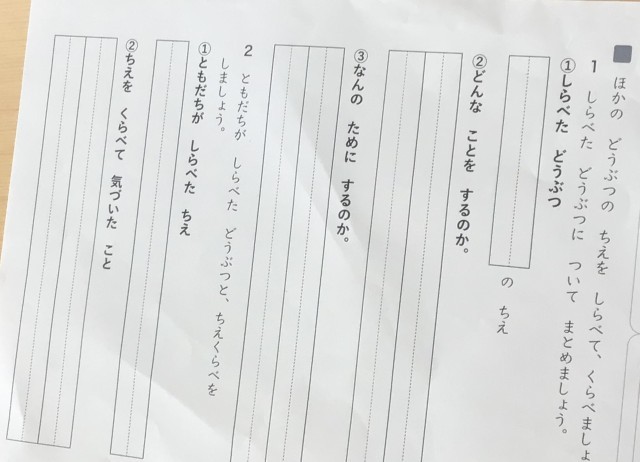 ほかの どうぶつの ちえを しらべて、くらべましょ
1 しらべた どうぶつに ついて まとめましょう。
①しらべた どうぶつ
の ちえ
②どんな ことを するのか。
③なんの ために するのか。
2 ともだちが しらべた どうぶつと、ちえくらべを
しましょう。
①ともだちが しらべた ちえ
②ちえを くらべて 気づいた こと